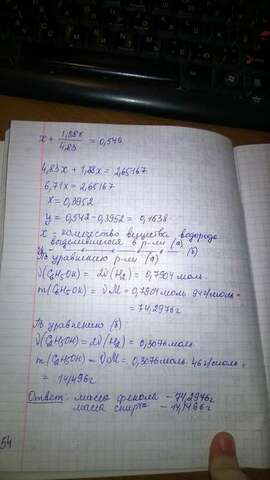 x + 1,88x/4,83 = 0,549
4,83x + 1,88x = 2,65167
6,71x = 2,65167
x = 0,3952
y = 0,549 - 0,3952 = 0,1538
x - количество вещества водорода
выделившегося в р-ии (а)
y (б)
По уравнению р-ии (а)
ν(C₆H₅OH) = 2ν(H₂) = 0,7904 моль
m(C₆H₅OH) = ν·M = 0,7904 моль · 94 г/моль =
= 74,2976 г
По уравнению (б)
ν(C₂H₅OH) = 2ν(H₂) = 0,3076 моль
m(C₂H₅OH) = ν·M = 0,3076 моль · 46 г/моль =
= 14,1496 г
Ответ: масса фенола - 74,2976 г
масса спирта - 14,1496 г
54